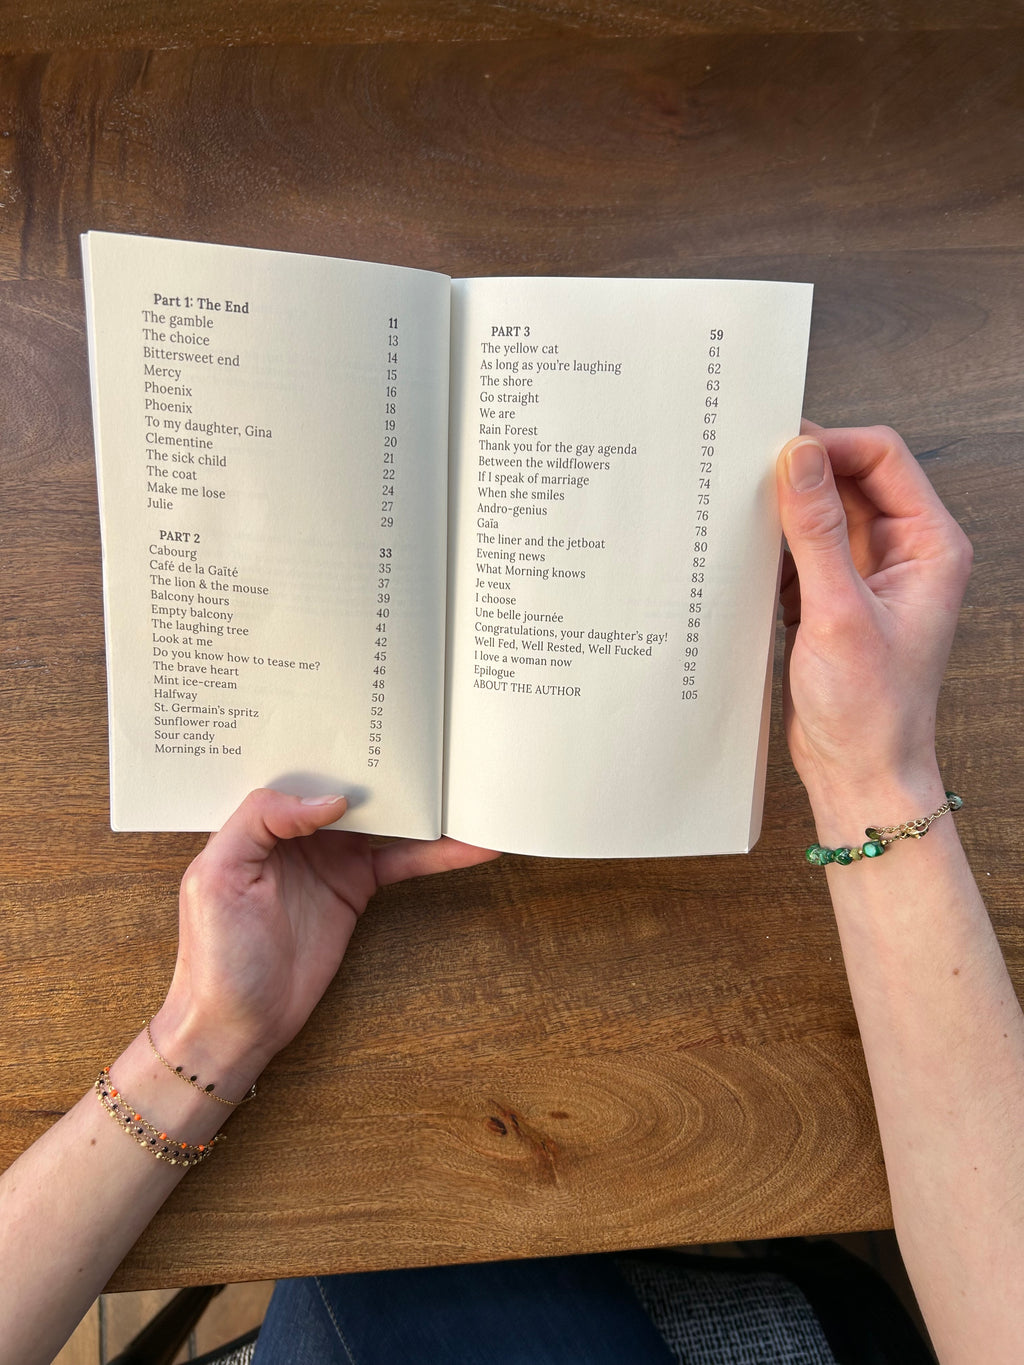 Part 1: The End 11
The gamble 13
The choice 14
Bittersweet end 15
Mercy 16
Phoenix 18
Phoenix 19
To my daughter, Gina 20
Clementine 21
The sick child 22
The coat 24
Make me lose 27
Julie 29
PART 2 33
Cabourg 35
Café de la Gaïté 37
The lion & the mouse 39
Balcony hours 40
Empty balcony 41
The laughing tree 42
Look at me 45
Do you know how to tease me? 46
The brave heart 48
Mint ice-cream 50
Halfway 52
St. Germain's spritz 53
Sunflower road 55
Sour candy 56
Mornings in bed 57
PART 3 59
The yellow cat 61
As long as you're laughing 62
The shore 63
Go straight 64
We are 67
Rain Forest 68
Thank you for the gay agenda 70
Between the wildflowers 72
If I speak of marriage 74
When she smiles 75
Andro-genius 76
Gaïa 78
The liner and the jetboat 80
Evening news 82
What Morning knows 83
Je veux 84
I choose 85
Une belle journée 86
Congratulations, your daughter's gay! 88
Well Fed, Well Rested, Well Fucked 90
I love a woman now 92
Epilogue 95
ABOUT THE AUTHOR 105